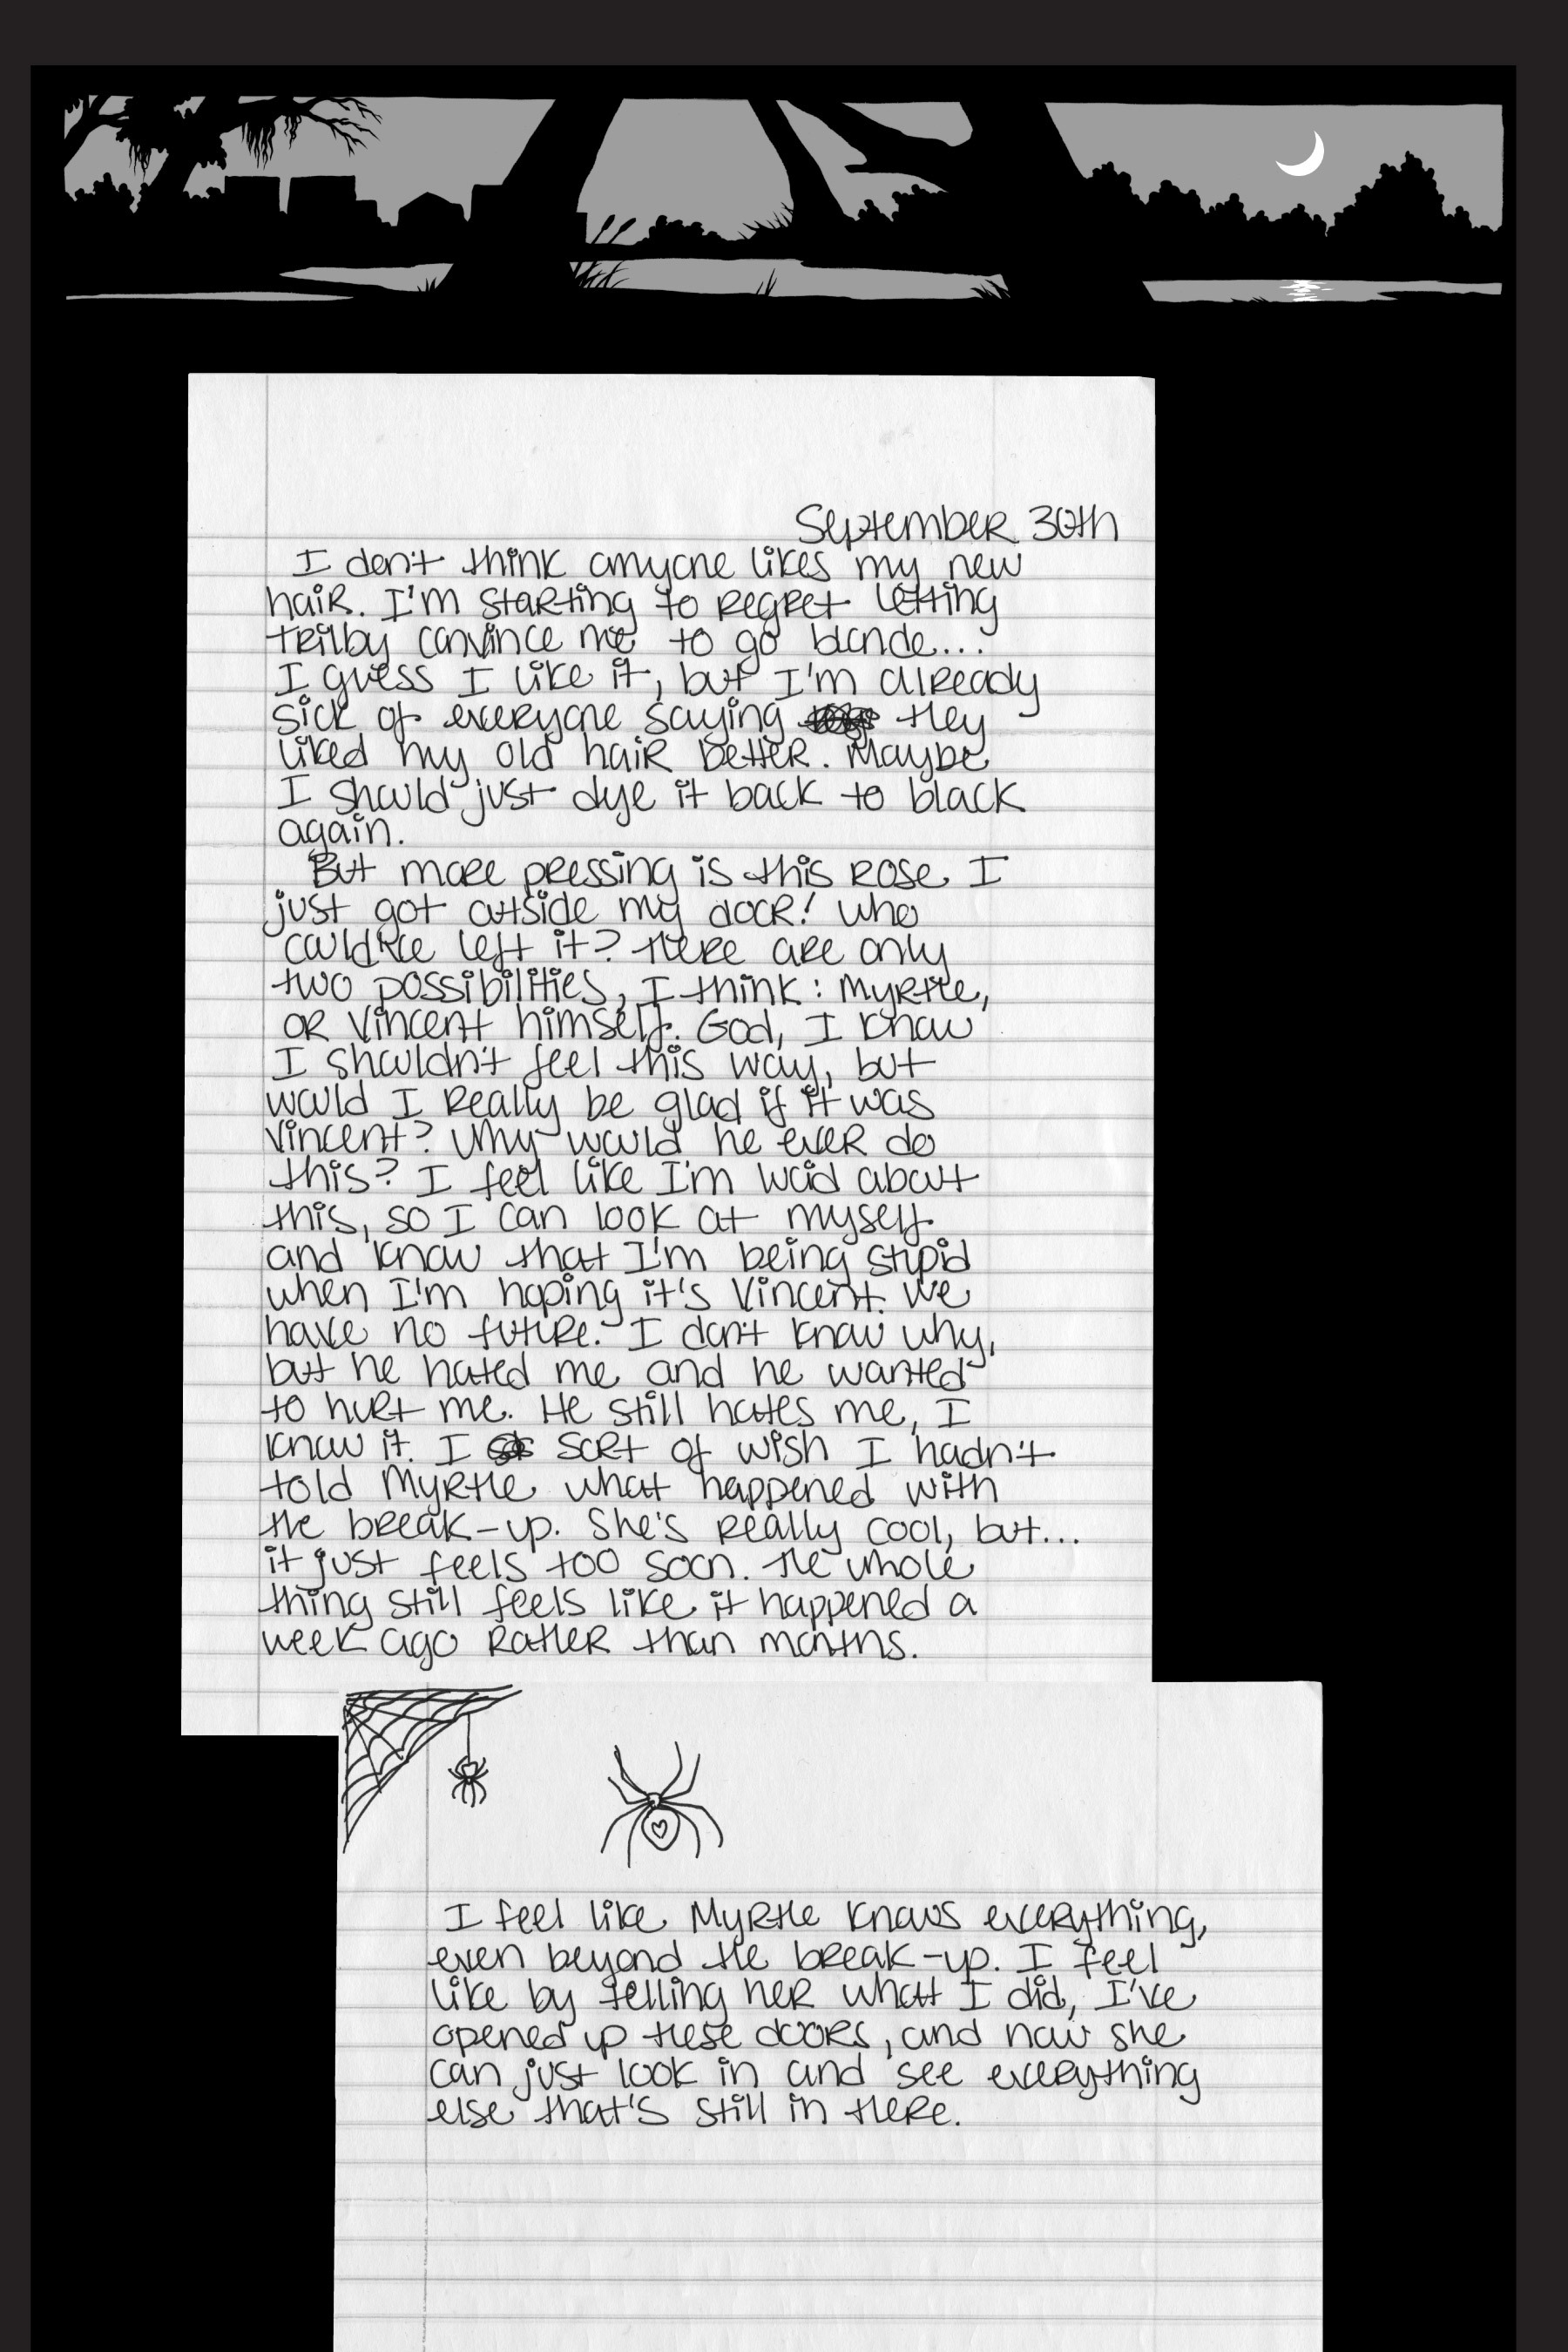 September 30th
I don't think anyone likes my new
hair. I'm starting to regret letting
Trilby convince me to go blonde...
I guess I like it, but I'm already
sick of everyone saying they
liked my old hair better. Maybe
I should just dye it back to black
again.
But more pressing is this rose I
just got outside my door! Who
could've left it? There are only
two possibilities, I think: Myrtle,
or Vincent himself. God, I know
I shouldn't feel this way, but
would I really be glad if it was
Vincent? Why would he ever do
this? I feel like I'm void about
this, so I can look at myself
and know that I'm being stupid
when I'm hoping it's Vincent. We
have no future. I don't know why,
but he hated me and he wanted
to hurt me. He still hates me, I
know it. I sort of wish I hadn't
told Myrtle what happened with
the break-up. She's really cool, but...
it just feels too soon. The whole
thing still feels like it happened a
week ago rather than months.
I feel like Myrtle knows everything,
even beyond the break-up. I feel
like by telling her what I did, I've
opened up these doors, and now she
can just look in and see everything
else that's still in there.